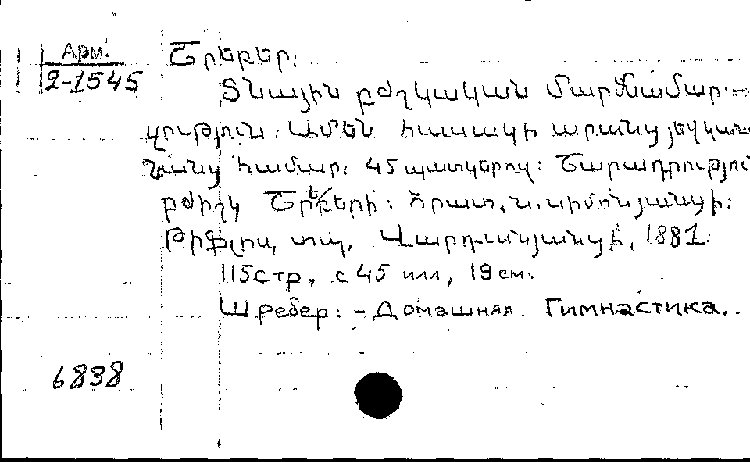 Арм.
2-1545
Շրեբեր.
Տնային բժշկական մարմնամար-
զություն. Ամեն հասակի արանց և կանանց
համար. 45 պատկերով: Շարադրություն
բժիշկ Շրեբերի: Հրատ. Ն. Սիմոնյանցի.
Թիֆլիս, տպ. Վարդանյանցի, 1881.
115 стр, с 45 илл, 19 см.
Шребер: - Домашняя Гимнастика.
6838